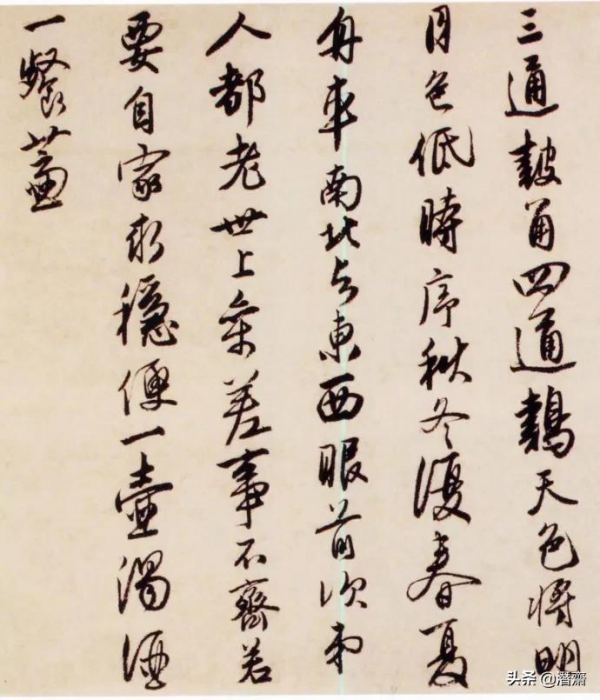 三通皷角四通鷄天色將明
月色低時序秋冬復春夏
舟車南北与東西眼前次第
人都老世上參差事不齊若
要自家求穩便一壺濁酒
一餐虀
头条 @潛齋